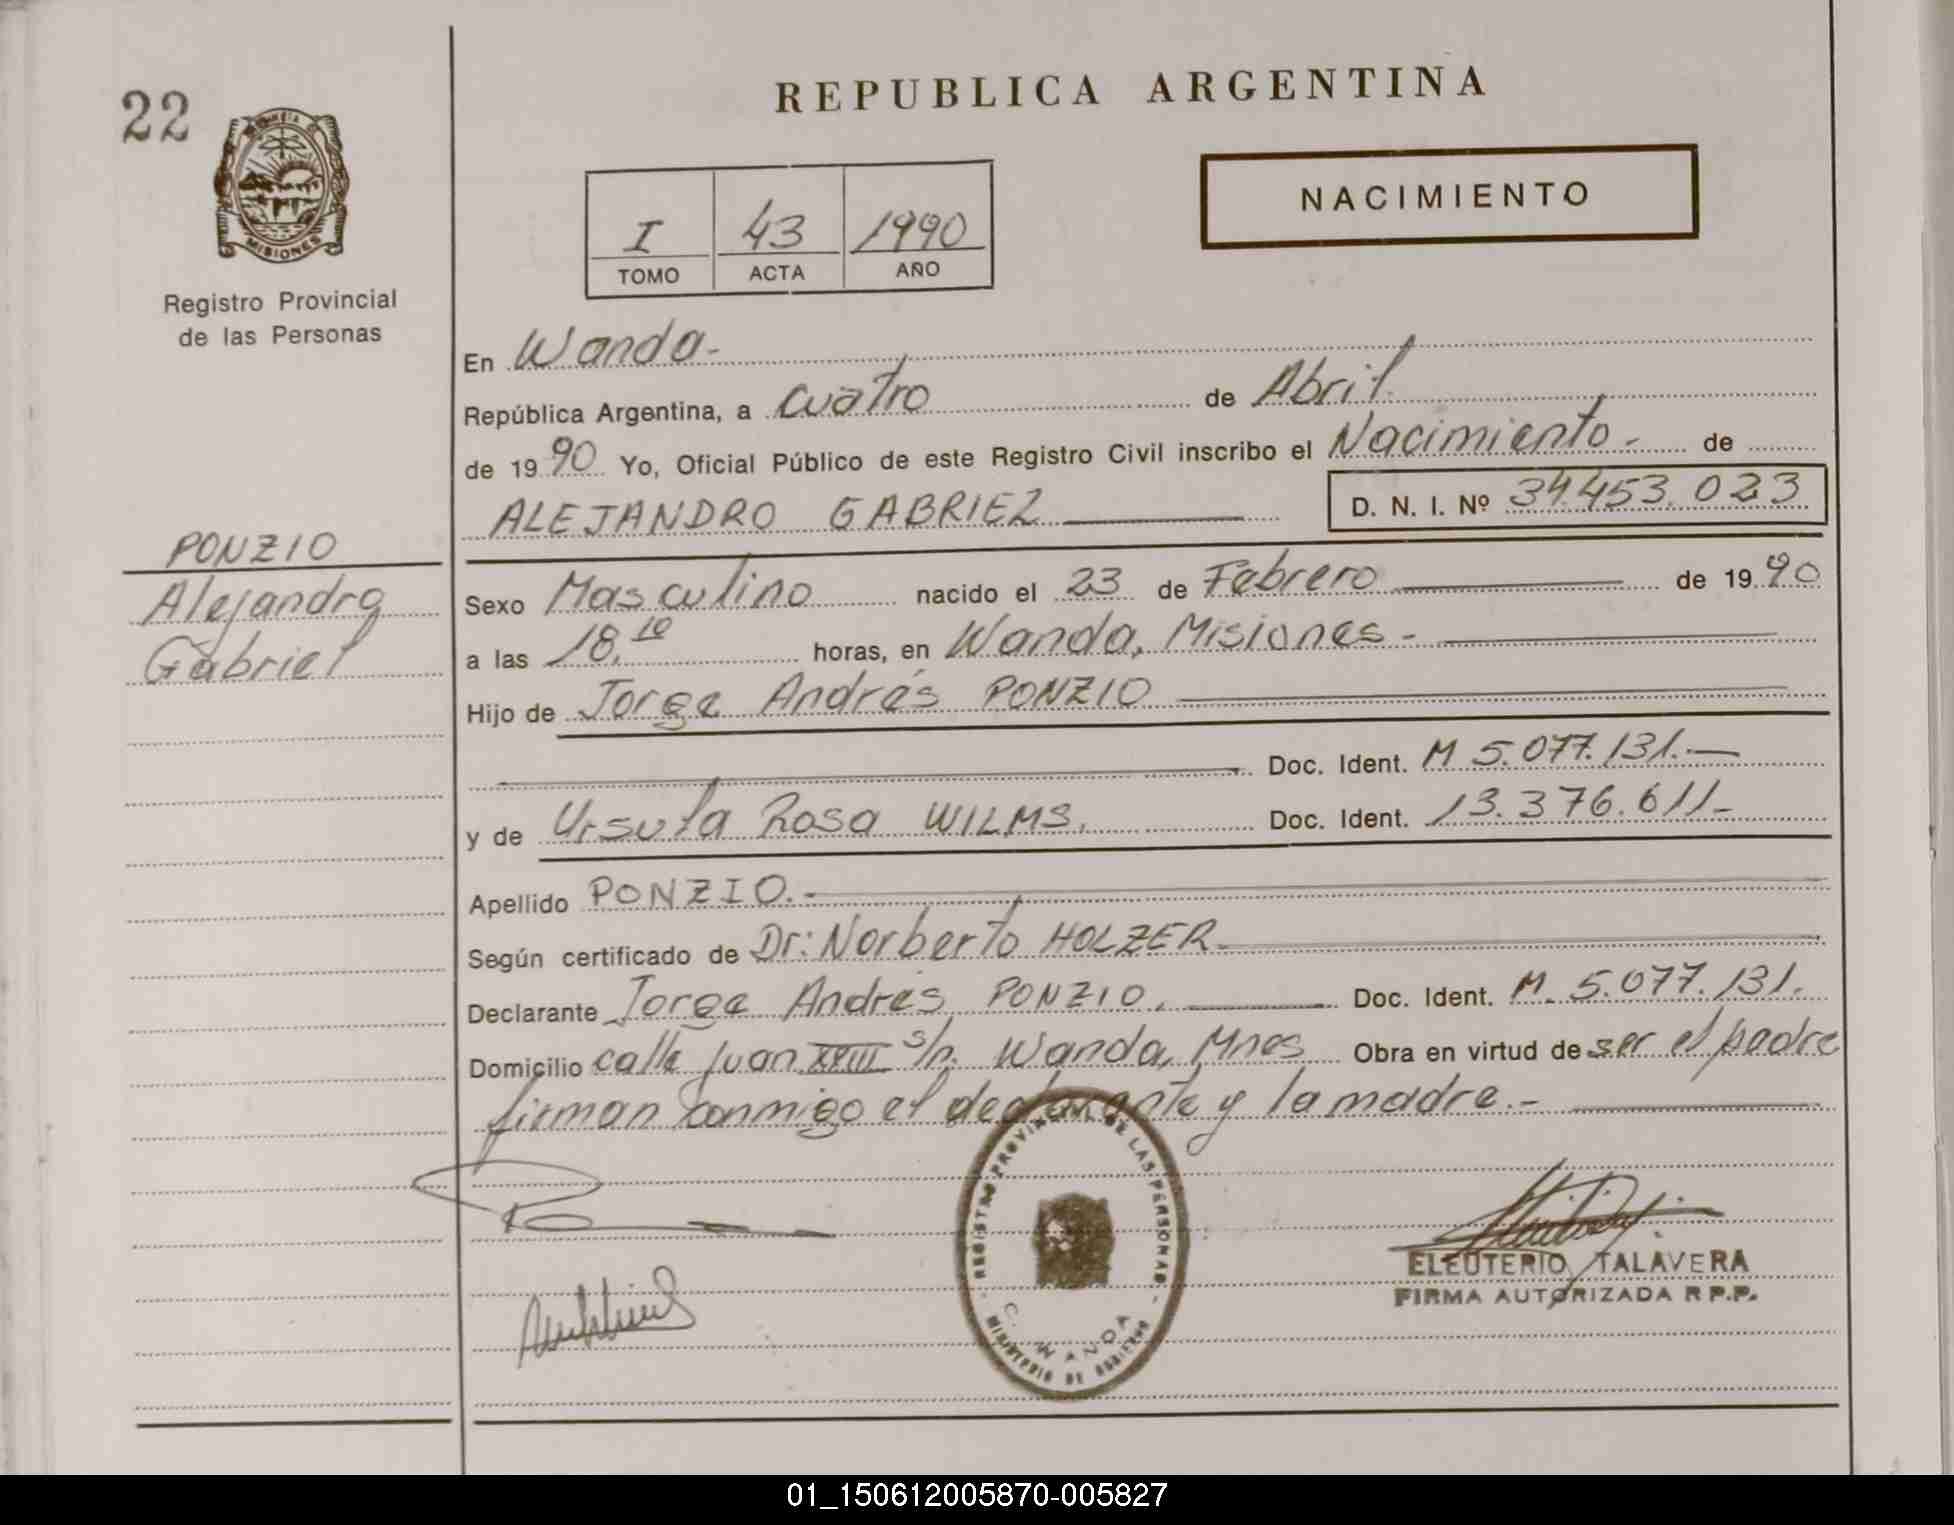 22
REPUBLICA ARGENTINA
NACIMIENTO
MISIONES
Registro Provincial
de las Personas
I 43 1990
TOMO ACTA AÑO
En Wanda-
República Argentina, a cuatro de Abril
de 1990 Yo, Oficial Público de este Registro Civil inscribo el Nacimiento- de
ALEJANDRO GABRIEL D. N. I. Nº 34.453.023
PONZIO
Alejandro
Gabriel
Sexo Masculino nacido el 23 de Febrero de 1990
a las 18,10 horas, en Wanda, Misiones-
Hijo de Jorge Andrés PONZIO
Doc. Ident. M 5.077.131.-
y de Ursula Rosa WILMS. Doc. Ident. 13.376.611-
Apellido PONZIO.-
Según certificado de Dr: Norberto HOLZER
Declarante Jorge Andrés PONZIO. Doc. Ident. M. 5.077.131.
Domicilio calle Juan XXIII s/n. Wanda, Mnes Obra en virtud de ser el padre
firman conmigo el declarante y la madre.-
REGISTRO PROVINCIAL DE LAS PERSONAS
C. WANDA
MINISTERIO DE GOBIERNO
ELEUTERIO TALAVERA
FIRMA AUTORIZADA R P.P.
01_150612005870-005827